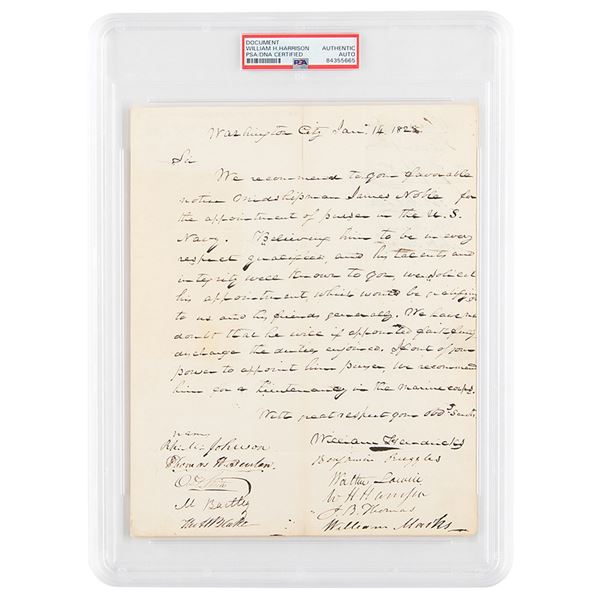 DOCUMENT
WILLIAM H. HARRISON
PSA/DNA CERTIFIED
AUTHENTIC
AUTO
84355665
PSA
Washington City Jany. 14 1828
Sir
We recommend to your favorable
notice Midshipman James Noble for
the appointment of purser in the U. S.
Navy. Believing him to be in every
respect qualified, and his talents and
integrity well known to you, we solicit
his appointment, which would be gratifying
to us and his friends generally. We have no
doubt that he will if appointed
discharge the duties enjoined. If out of your
power to appoint him purser, we recommend
him for a Lieutenancy in the marine corps.
With great respect your obdt. Servts
William Hendricks
Johnson
Benjamin Ruggles
Thomas H.
Walter Lowrie
W H Harrison
M Bartley
J. B. Thomas
Tho. H Blake
William Marks